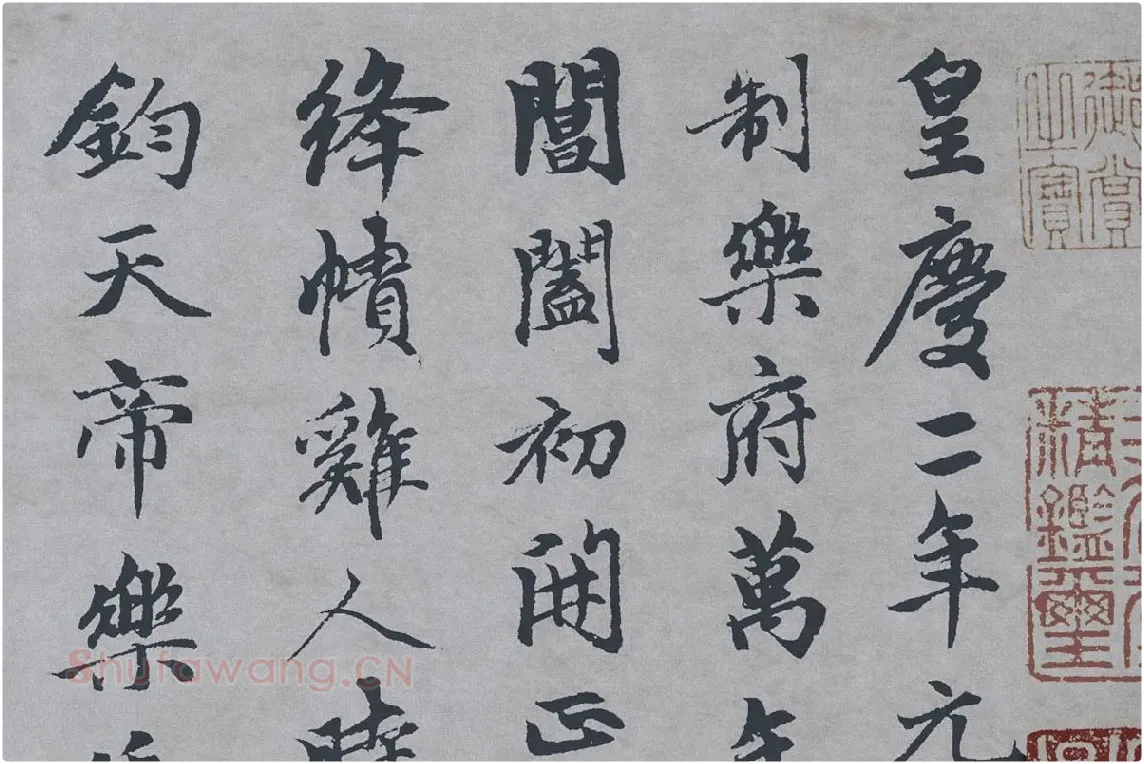 皇慶二年元
制樂府萬年
閶闔初開正
絳幘雞人曉
鈞天帝樂
御賞之寶
精鑑璽
Shufawang.CN